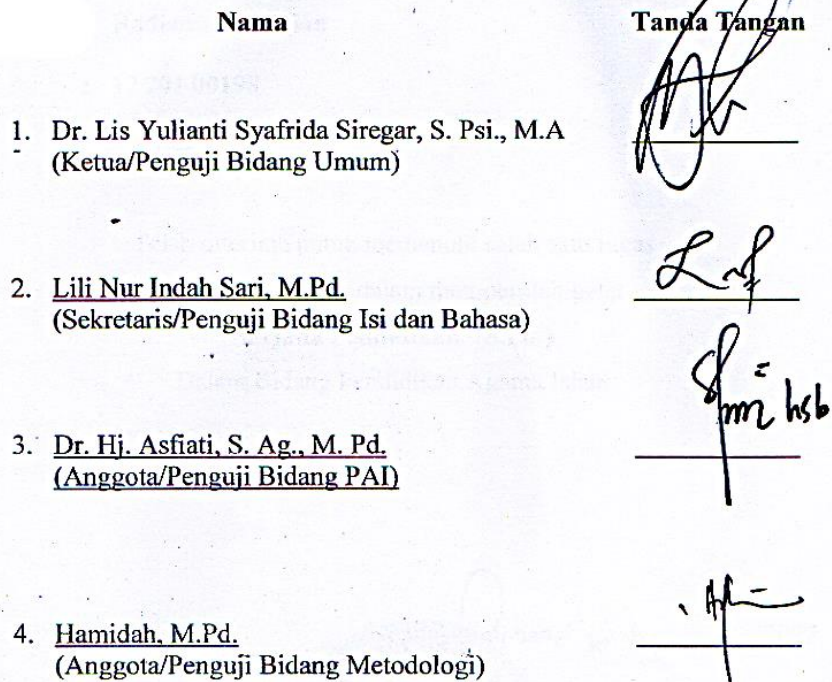 Nama Tanda Tangan
1. Dr. Lis Yulianti Syafrida Siregar, S. Psi., M.A
(Ketua/Penguji Bidang Umum)
2. Lili Nur Indah Sari, M.Pd.
(Sekretaris/Penguji Bidang Isi dan Bahasa)
hsb
3. Dr. Hj. Asfiati, S. Ag., M. Pd.
(Anggota/Penguji Bidang PAI)
4. Hamidah, M.Pd.
(Anggota/Penguji Bidang Metodologi)